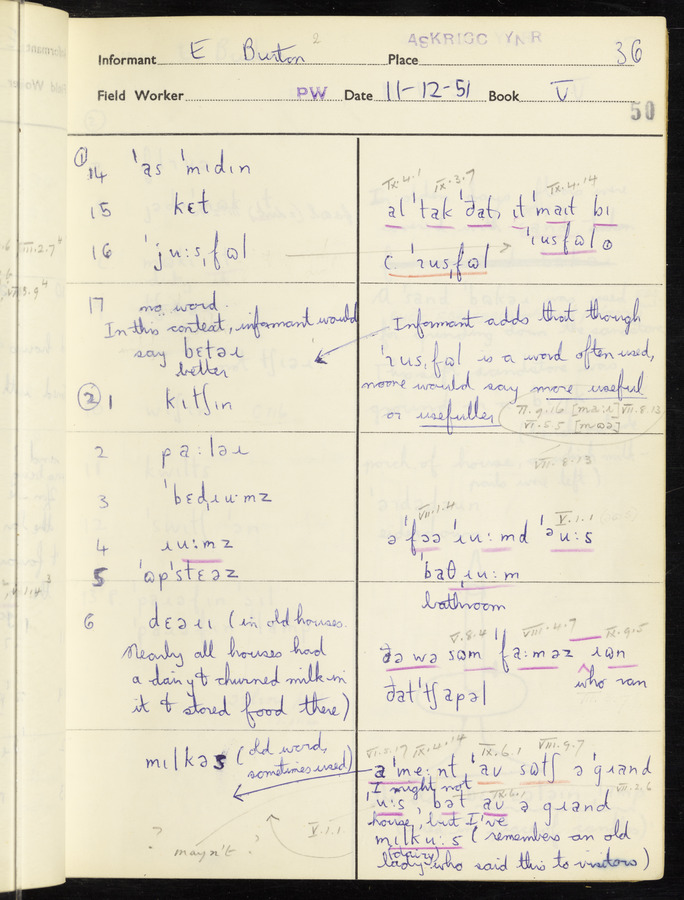 ASKRIGG YNR
Informant E Burton 2 Place 36
Field Worker PW Date 11-12-51 Book V
50
① 14 ˈas ˈmɪdɪn
15 kɛt
16 ˈjuːsˌfʊl
IX.4.1 IX.3.7 IX.4.14
al ˈtak ˈðat, ɪt ˈmaɪt bɪ
ˈɪusfʊl o
c. ˈɪusˌfʊl
17 no word.
In this context, informant would
say bɛtəɪ
better
Informant adds that though
ˈɪusˌfʊl is a word often used,
noone would say more useful
or usefuller
VI.5.5
VII.8.13
② 1 kɪtʃɪn
2 paːləɪ
3 ˈbɛdˌɪuːmz
4 ɪuːmz
5 ˈʊpˈstɛəz
VII.1.4 V.1.1
ə ˈfɔə ˈɪuːmd ˈəuːs
ˈbaθˌɪuːm
bathroom
6 dɛəɪɪ (in old houses.
Nearly all houses had
a dairy & churned milk in
it & stored food there)
V.8.4 VIII.4.7 IX.9.5
ðə wə sʊm ˈfaːməz ɪʊn
who ran
ðat ˈtʃapəl
mɪlkəs (old word,
sometimes used)
IX.4.14 IX.6.1 VIII.9.7
a ˈmeːnt ˈav sʊtʃ ə ˈgɪand
I might not
uːs bət av ə gɪand
house, but I've
mɪlkuːs (remembers an old
(dairy)
lady who said this to visitors)
? mayn't ?
V.1.1